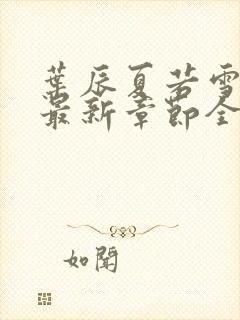 葉辰夏若雪
最新章節全
如聞